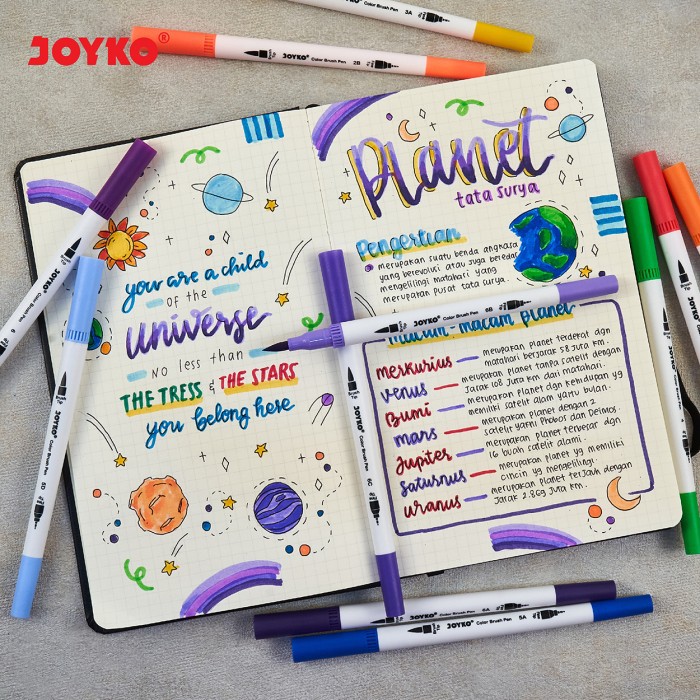 JOYKO®
3A
JOYKO Color Brush Pen 2B Brush Tip
you are a child
of the
universe
no less than
THE TRESS & THE STARS
you belong here
Planet
tata surya
Pengertian
merupakan suatu benda angkasa
yang berevolusi atau juga beredar
mengelilingi matahari yang
merupakan pusat tata surya.
JOYKO Color Brush Pen 6B
Macam-macam planet
merkurius — merupakan planet terdekat dgn
matahari berjarak 58 juta km.
venus — merupakan planet tanpa satelit dengan
jarak 108 juta km dari matahari.
Bumi — merupakan planet dgn kehidupan yg
memiliki satelit alam yaitu bulan.
mars — merupakan planet dengan 2
satelit yaitu Phobos dan Deimos.
Jupiter — merupakan planet terbesar dgn
16 buah satelit alami.
Saturnus — merupakan planet yg memiliki
cincin yg mengelilingi.
uranus — merupakan planet terjauh dengan
jarak 2.869 juta km.
Brush Tip JOYKO Color Brush Pen 5D
JOYKO Color Brush Pen 6C
JOYKO Color Brush Pen 6A
JOYKO Color Brush Pen 5A